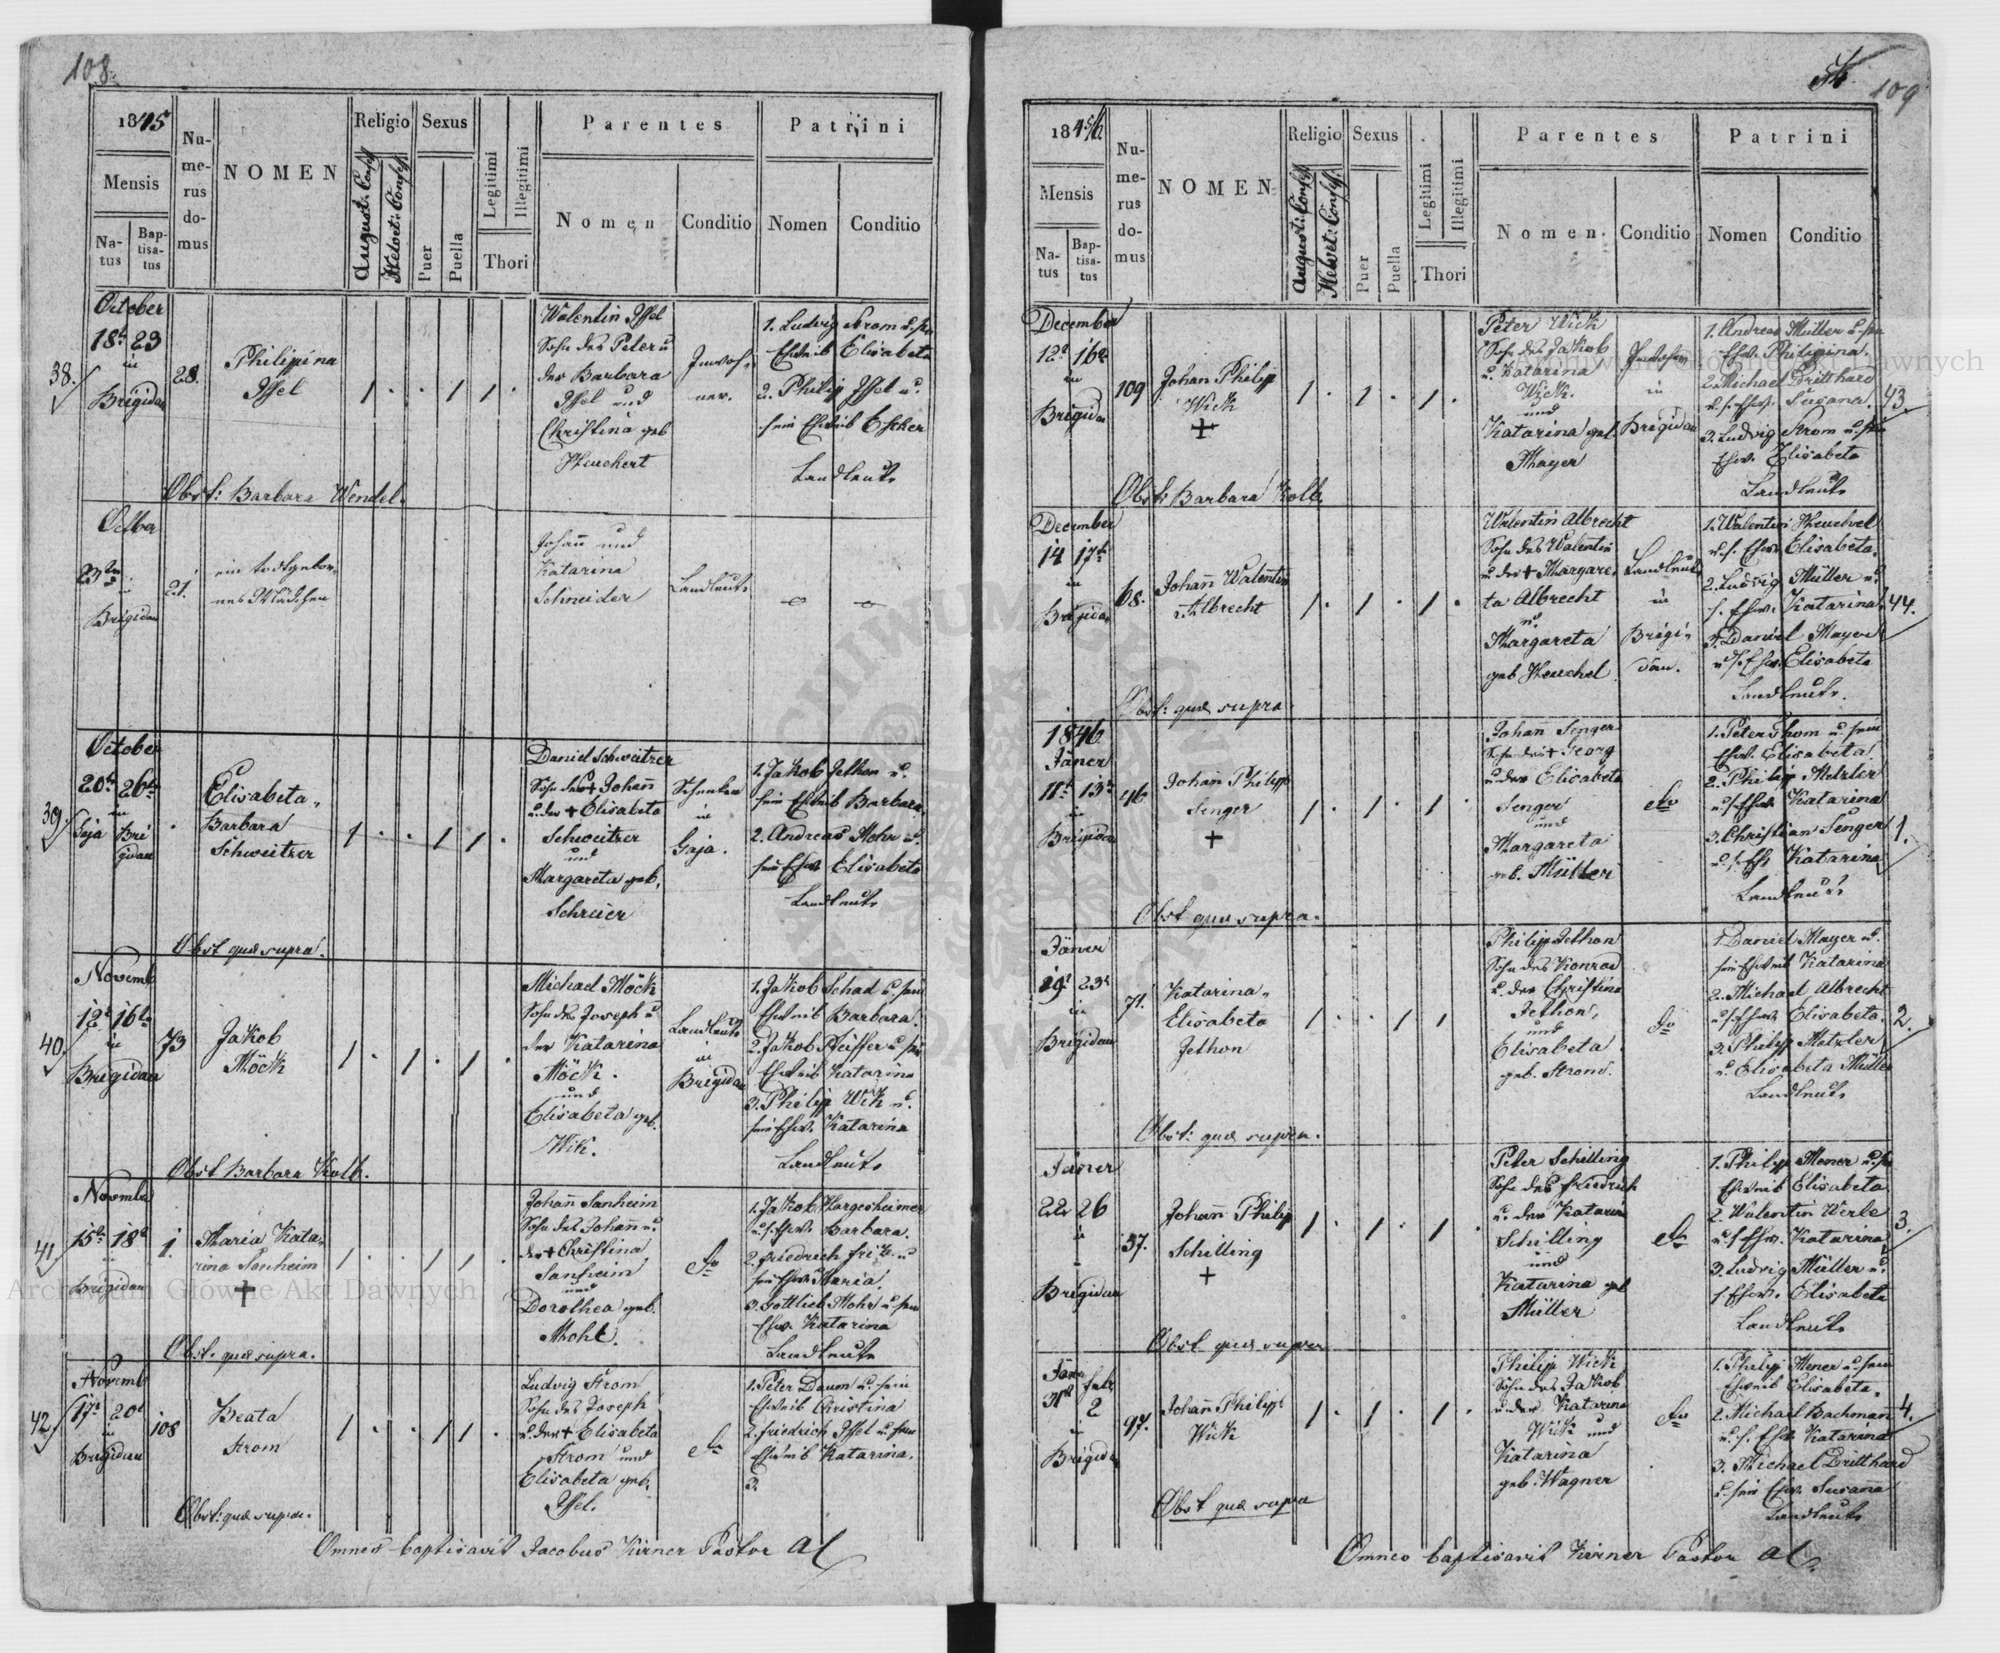 108.
1845
Mensis
Na-
tus
Bap-
tisa-
tus
Nu-
me-
rus
do-
mus
NOMEN
Religio
August: Conf:
Helvet: Conf:
Sexus
Puer
Puella
Legitimi
Illegitimi
Thori
Parentes
Nomen
Conditio
Patrini
Nomen
Conditio
38.
October
18t 23
in
Brigidau
28.
Philippina
Issel
Valentin Issel
Sohn des Peter u
der Barbara
Issel und
Christina geb
Heuchert
Inwoh-
ner.
1. Ludvig Strom u. sein
Eheweib Elisabeta
2. Philip Issel u.
sein Eheweib
Landleute
Obst: Barbara Wendel.
October
in
Brigidau
21.
ein todtgebor-
nes Mädchen
Johann und
Katarina
Schneider
Landleute
39.
October
20t 26t
in
Gaja Bri
gidau
Elisabeta
Barbara
Schweitzer
Daniel Schweitzer
Sohn des + Johann
u. der + Elisabeta
Schweitzer
und
Margareta geb.
Schreier
in
Gaja.
1. Jakob Jethon u.
sein Eheweib Barbara
2. Andreas Mohr u.
sein Ehew. Elisabeta
Landleute
Obst quae supra.
40.
Novemb
12t 16t
in
Brigidau
73
Jakob
Möck
Michael Möck
Sohn des Joseph u
der Katarina
Möck.
und
Elisabeta geb.
Wik.
Landleute
in
Brigidau
1. Jakob Schad u. sein
Eheweib Barbara.
2. Jakob Pfeiffer u sein
Eheweib Katarina
3. Philip Wik u.
sein Ehew. Katarina
Landleute
Obst Barbara Kolb.
41.
Novemb
15t 18t
in
Brigidau
1.
Maria Kata-
rina Sanheim
+
Johann Sanheim
Sohn des Johann u
der + Christina
Sanheim
und
Dorothea geb.
Mohr
do
1. Jakob Hargesheimer
u. s. Ehew. Barbara.
2. Friedrich Frik u
sein Ehew. Maria
3. Gottlieb Mohr u sein
Ehew. Katarina
Landleute
Obst. quae supra.
42.
Novemb
17t 20t
in
Brigidau
108
Beata
Strom
Ludvig Strom
Sohn des Joseph
u. der + Elisabeta
Strom und
Elisabeta geb.
Issel.
do
1. Peter Daum u. sein
Eheweib Cristina
2. Friedrich Issel u sein
Eheweib Katarina.
3.
Obst: quae supra.
Omnes baptisavit Jacobus Kirner Pastor AC
109
1845/6
Mensis
Na-
tus
Bap-
tisa-
tus
Nu-
me-
rus
do-
mus
NOMEN
Religio
August: Conf:
Helvet: Conf:
Sexus
Puer
Puella
Legitimi
Illegitimi
Thori
Parentes
Nomen.
Conditio
Patrini
Nomen
Conditio
December
12t 16t
in
Brigidau
109
Johan Philip
Wick
+
Peter Wick
Sohn des Jakob
u. Katarina
Wick.
und
Katarina geb.
Mayer
in
Brigidau
1. Andreas Müller u. sein
Ehew. Philipina.
2. Michael Dritthard
u. s. Ehew. Susana.
3. Ludvig Strom u. sein
Ehew. Elisabeta
Landleute
43
Obst: Barbara Kolb.
December
14 17t
in
Brigidau
68.
Johann Valentin
Albrecht
Valentin Albrecht
Sohn des Valentin
u der + Margare-
ta Albrecht
u.
Margareta
geb Heuchel
Landleute
in
Brigi-
dau.
1. Valentin Heuchel
u. s. Ehew. Elisabeta.
2. Ludvig Müller u.
s. Ehew. Katarina
3. Daniel Mayer
u. s. Ehew. Elisabeta
Landleute.
44.
Obst: quae supra
1846
Jäner
11t 13t
in
Brigidau
46
Johan Philipp
Senger
+
Johan Senger
Sohn des + Georg
u der Elisabeta
Senger
und
Margareta
geb. Müller
do
1. Peter Thom u. sein
Ehew. Elisabeta
2. Philip Metzler
u. s. Ehew. Katarina
3. Christian Senger
u. s. Eh. Katarina
Landleute
1.
Obst quae supra.
Jäner
19t 23t
in
Brigidau
71.
Katarina
Elisabeta
Jethon
Philipp Jethon
Sohn des Konrad
u. der Christina
Jethon,
und
Elisabeta
geb. Strom.
do
1. Daniel Mayer u.
sein Eheweib Katarina
2. Michael Albrecht
u. s. Ehew. Elisabeta.
3. Philipp Metzler
u. Elisabeta Müller
Landleute
2.
Obst: quae supra.
Jäner
22 26
in
Brigidau
37.
Johann Philip
Schilling
+
Peter Schilling
Sohn des Friedrich
u. der Katarina
Schilling
und
Katarina geb
Müller
do
1. Philipp Mener u. sein
Eheweib Elisabeta
2. Valentin Werle
u. s. Ehew. Katarina
3. Ludvig Müller u.
s. Ehew. Elisabeta
Landleute
3.
Obst quae supra
Jäner Febr
31t 2
in
Brigidau
97.
Johann Philipp
Wick
Philip Wick
Sohn des Jakob
u der Katarina
Wick und
Katarina
geb. Wagner
do
1. Philip Mener u. sein
Eheweib Elisabeta.
2. Michael Bachmann
u. s. Ehew. Katarina
3. Michael Dritthard
u. sein Ehew. Susana
Landleute
4.
Obst quae supra
Omnes baptisavit Kirner Pastor AC.
Archiwum Główne Akt Dawnych
Archiwum Główne Akt Dawnych